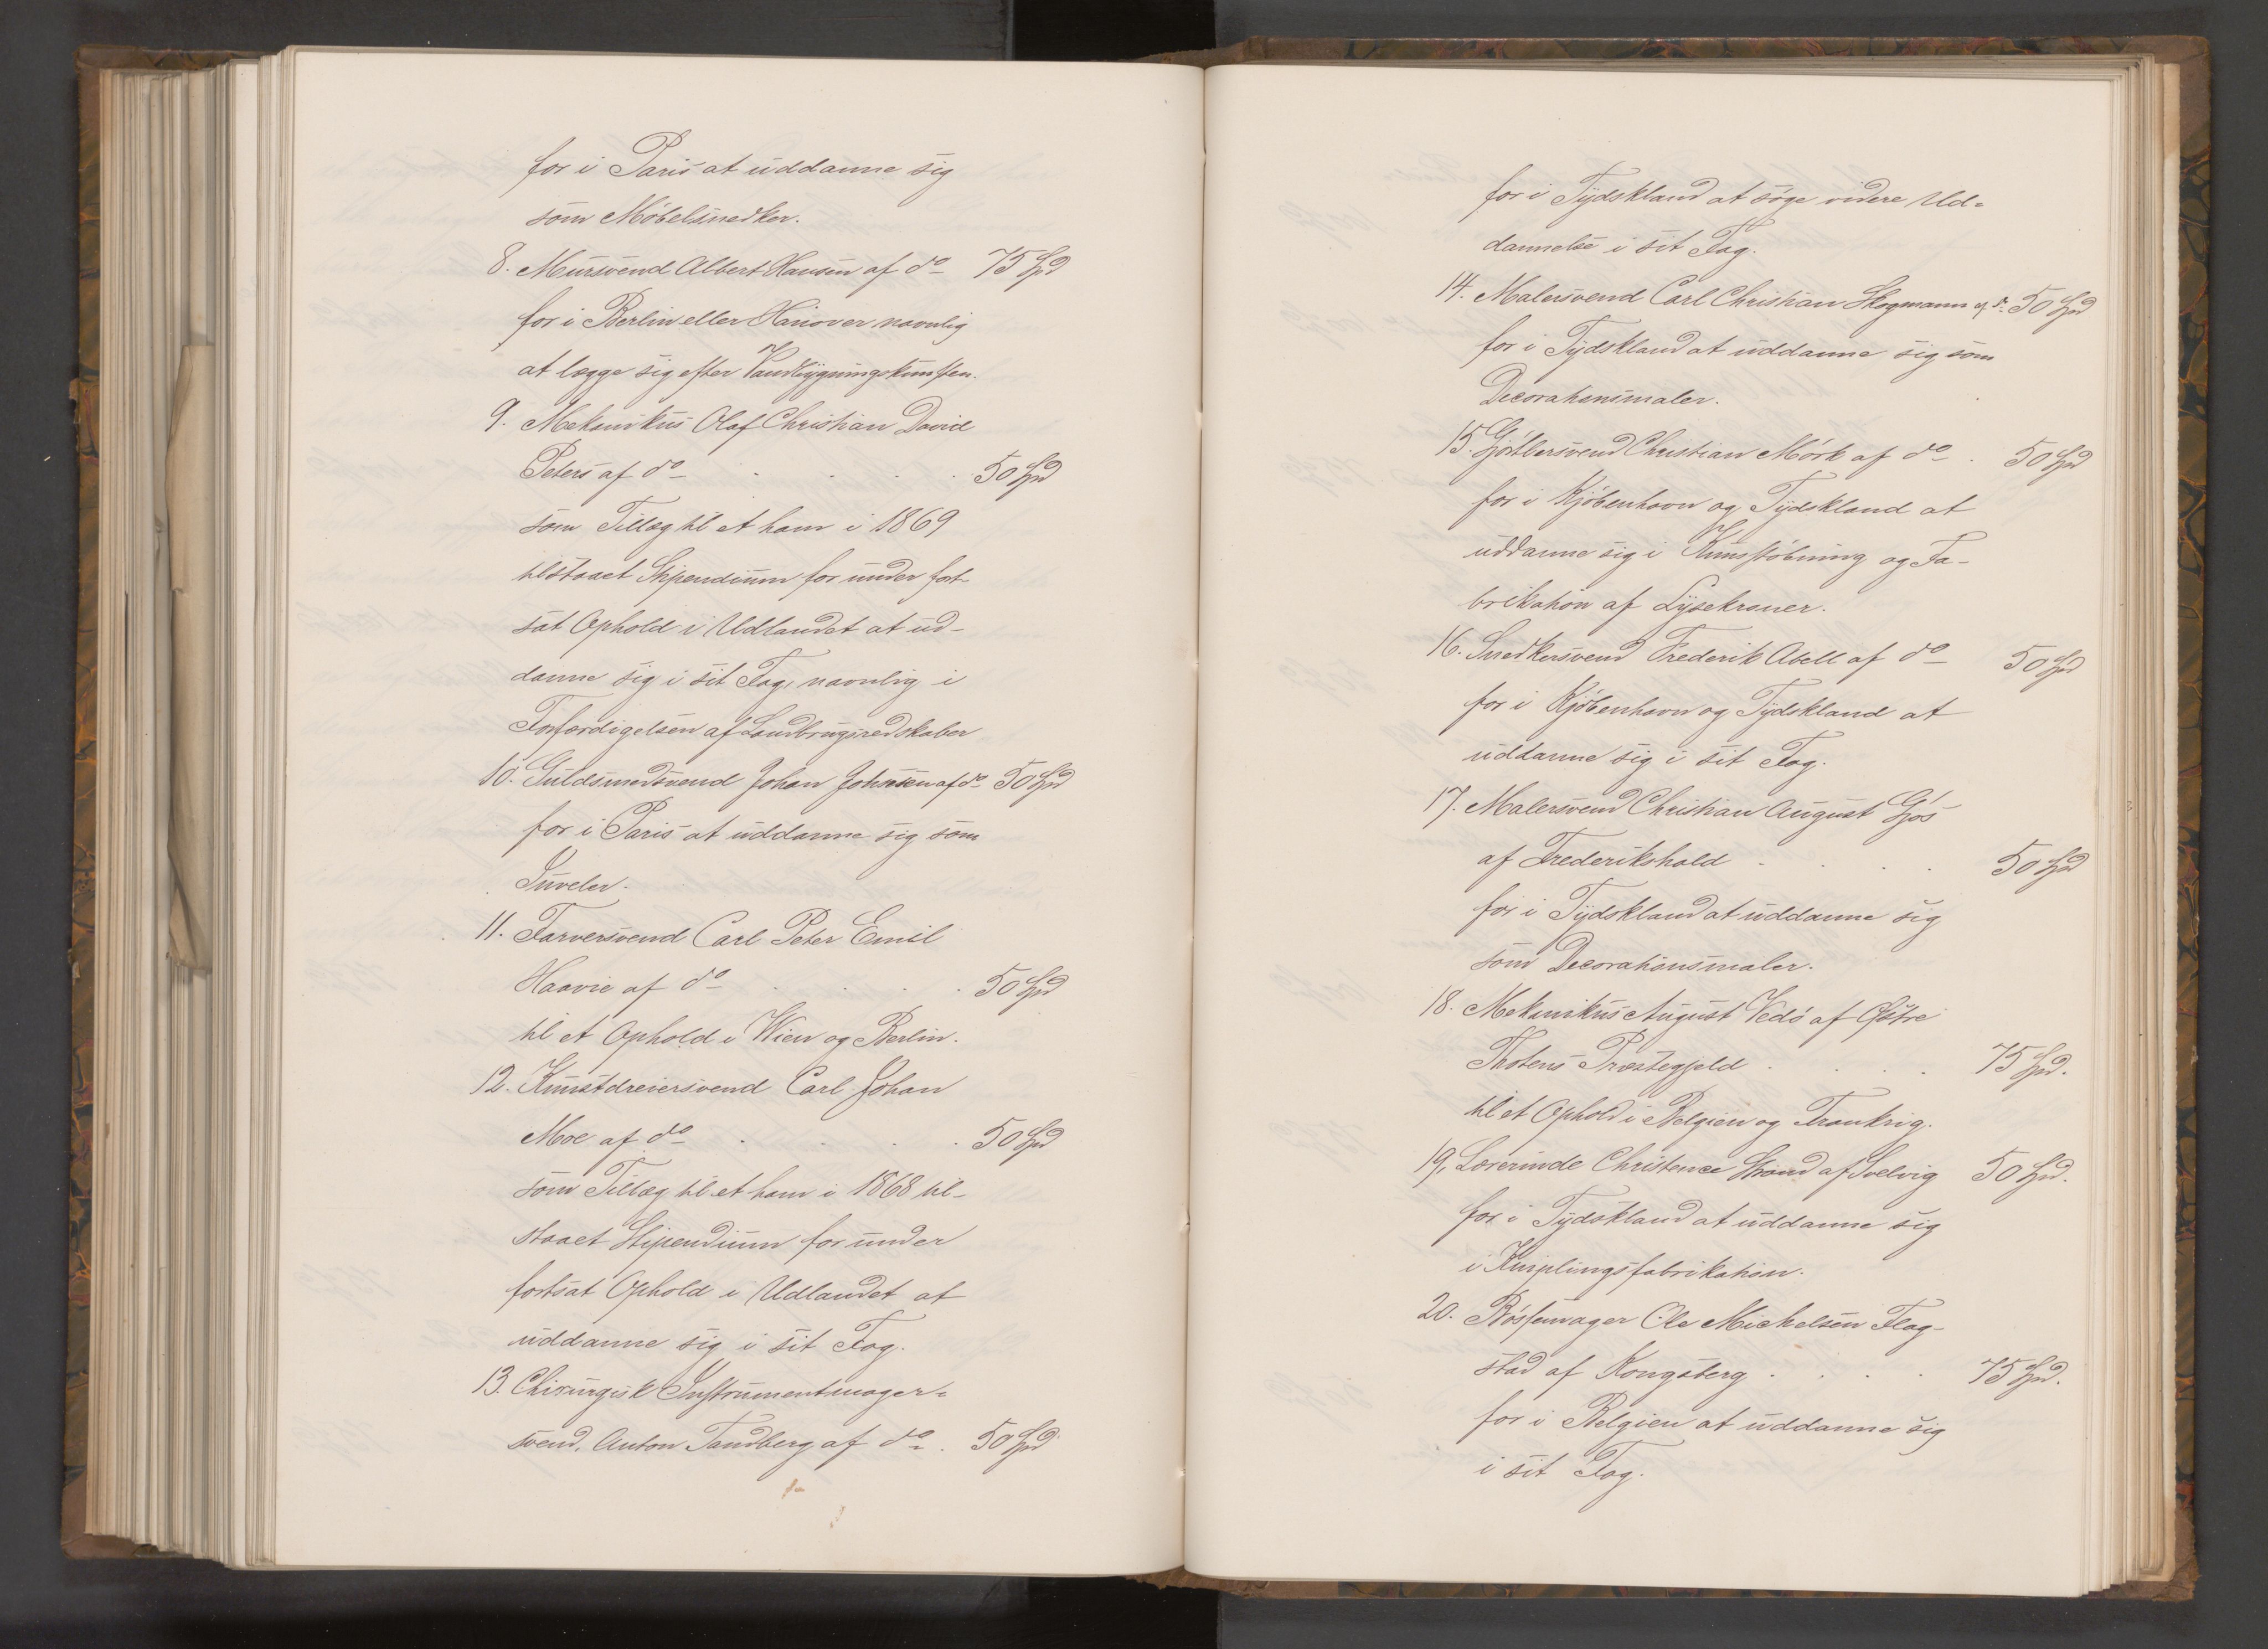 for i Paris at uddanne sig
som Möbelsnedker.
8. Mursvend Albert Hansen af do 75 Spd
for i Berlin eller Hanover navnlig
at lægge sig efter Vandbygningskunsten.
9. Mekanikus Olaf Christian David
Peters af do . . . . 50 Spd
som Tillæg til et ham i 1869
tilstaaet Stipendium for under fort-
sat Ophold i Udlandet at ud-
danne sig i sit Fag, navnlig i
Forfærdigelsen af Landbrugsredskaber
10. Guldsmedsvend Johan Johnsen af do 50 Spd
for i Paris at uddanne sig som
Juveler.
11. Farversvend Carl Peter Emil
Haavie af do . . . . 50 Spd
til et Ophold i Wien og Berlin.
12. Kunstdreiersvend Carl Johan
Moe af do . . . . 50 Spd
som Tillæg til et ham i 1868 til-
staaet Stipendium for under
fortsat Ophold i Udlandet at
uddanne sig i sit Fag.
13. Chirurgisk Instrumentmager-
svend, Anton Tandberg af do . 50 Spd
for i Tydskland at söge videre Ud-
dannelse i sit Fag.
14. Malersvend Carl Christian Skogmann af do 50 Spd
for i Tydskland at uddanne sig som
Decorationsmaler.
15. Gjörtlersvend Christian Mörk af do . 50 Spd
for i Kjöbenhavn og Tydskland at
uddanne sig i Kunststöbning og Fa-
brikation af Lysekroner.
16. Snedkersvend Frederik Abell af do 50 Spd
for i Kjöbenhavn og Tydskland at
uddanne sig i sit Fag.
17. Malersvend Christian August Gjös
af Frederikshald . . . . 50 Spd
for i Tydskland at uddanne sig
som Decorationsmaler.
18. Mekanikus August Vedö af Østre
Thotens Præstegjeld . . . . 75 Spd.
til et Ophold i Belgien og Frankrig.
19, Lærerinde Christence Strand af Svelvig 50 Spd.
for i Tydskland at uddanne sig
i Kniplingsfabrikation.
20. Bössemager Ole Michelsen Flag-
stad af Kongsberg . . . . 75 Spd.
for i Belgien at uddanne sig
i sit Fag.